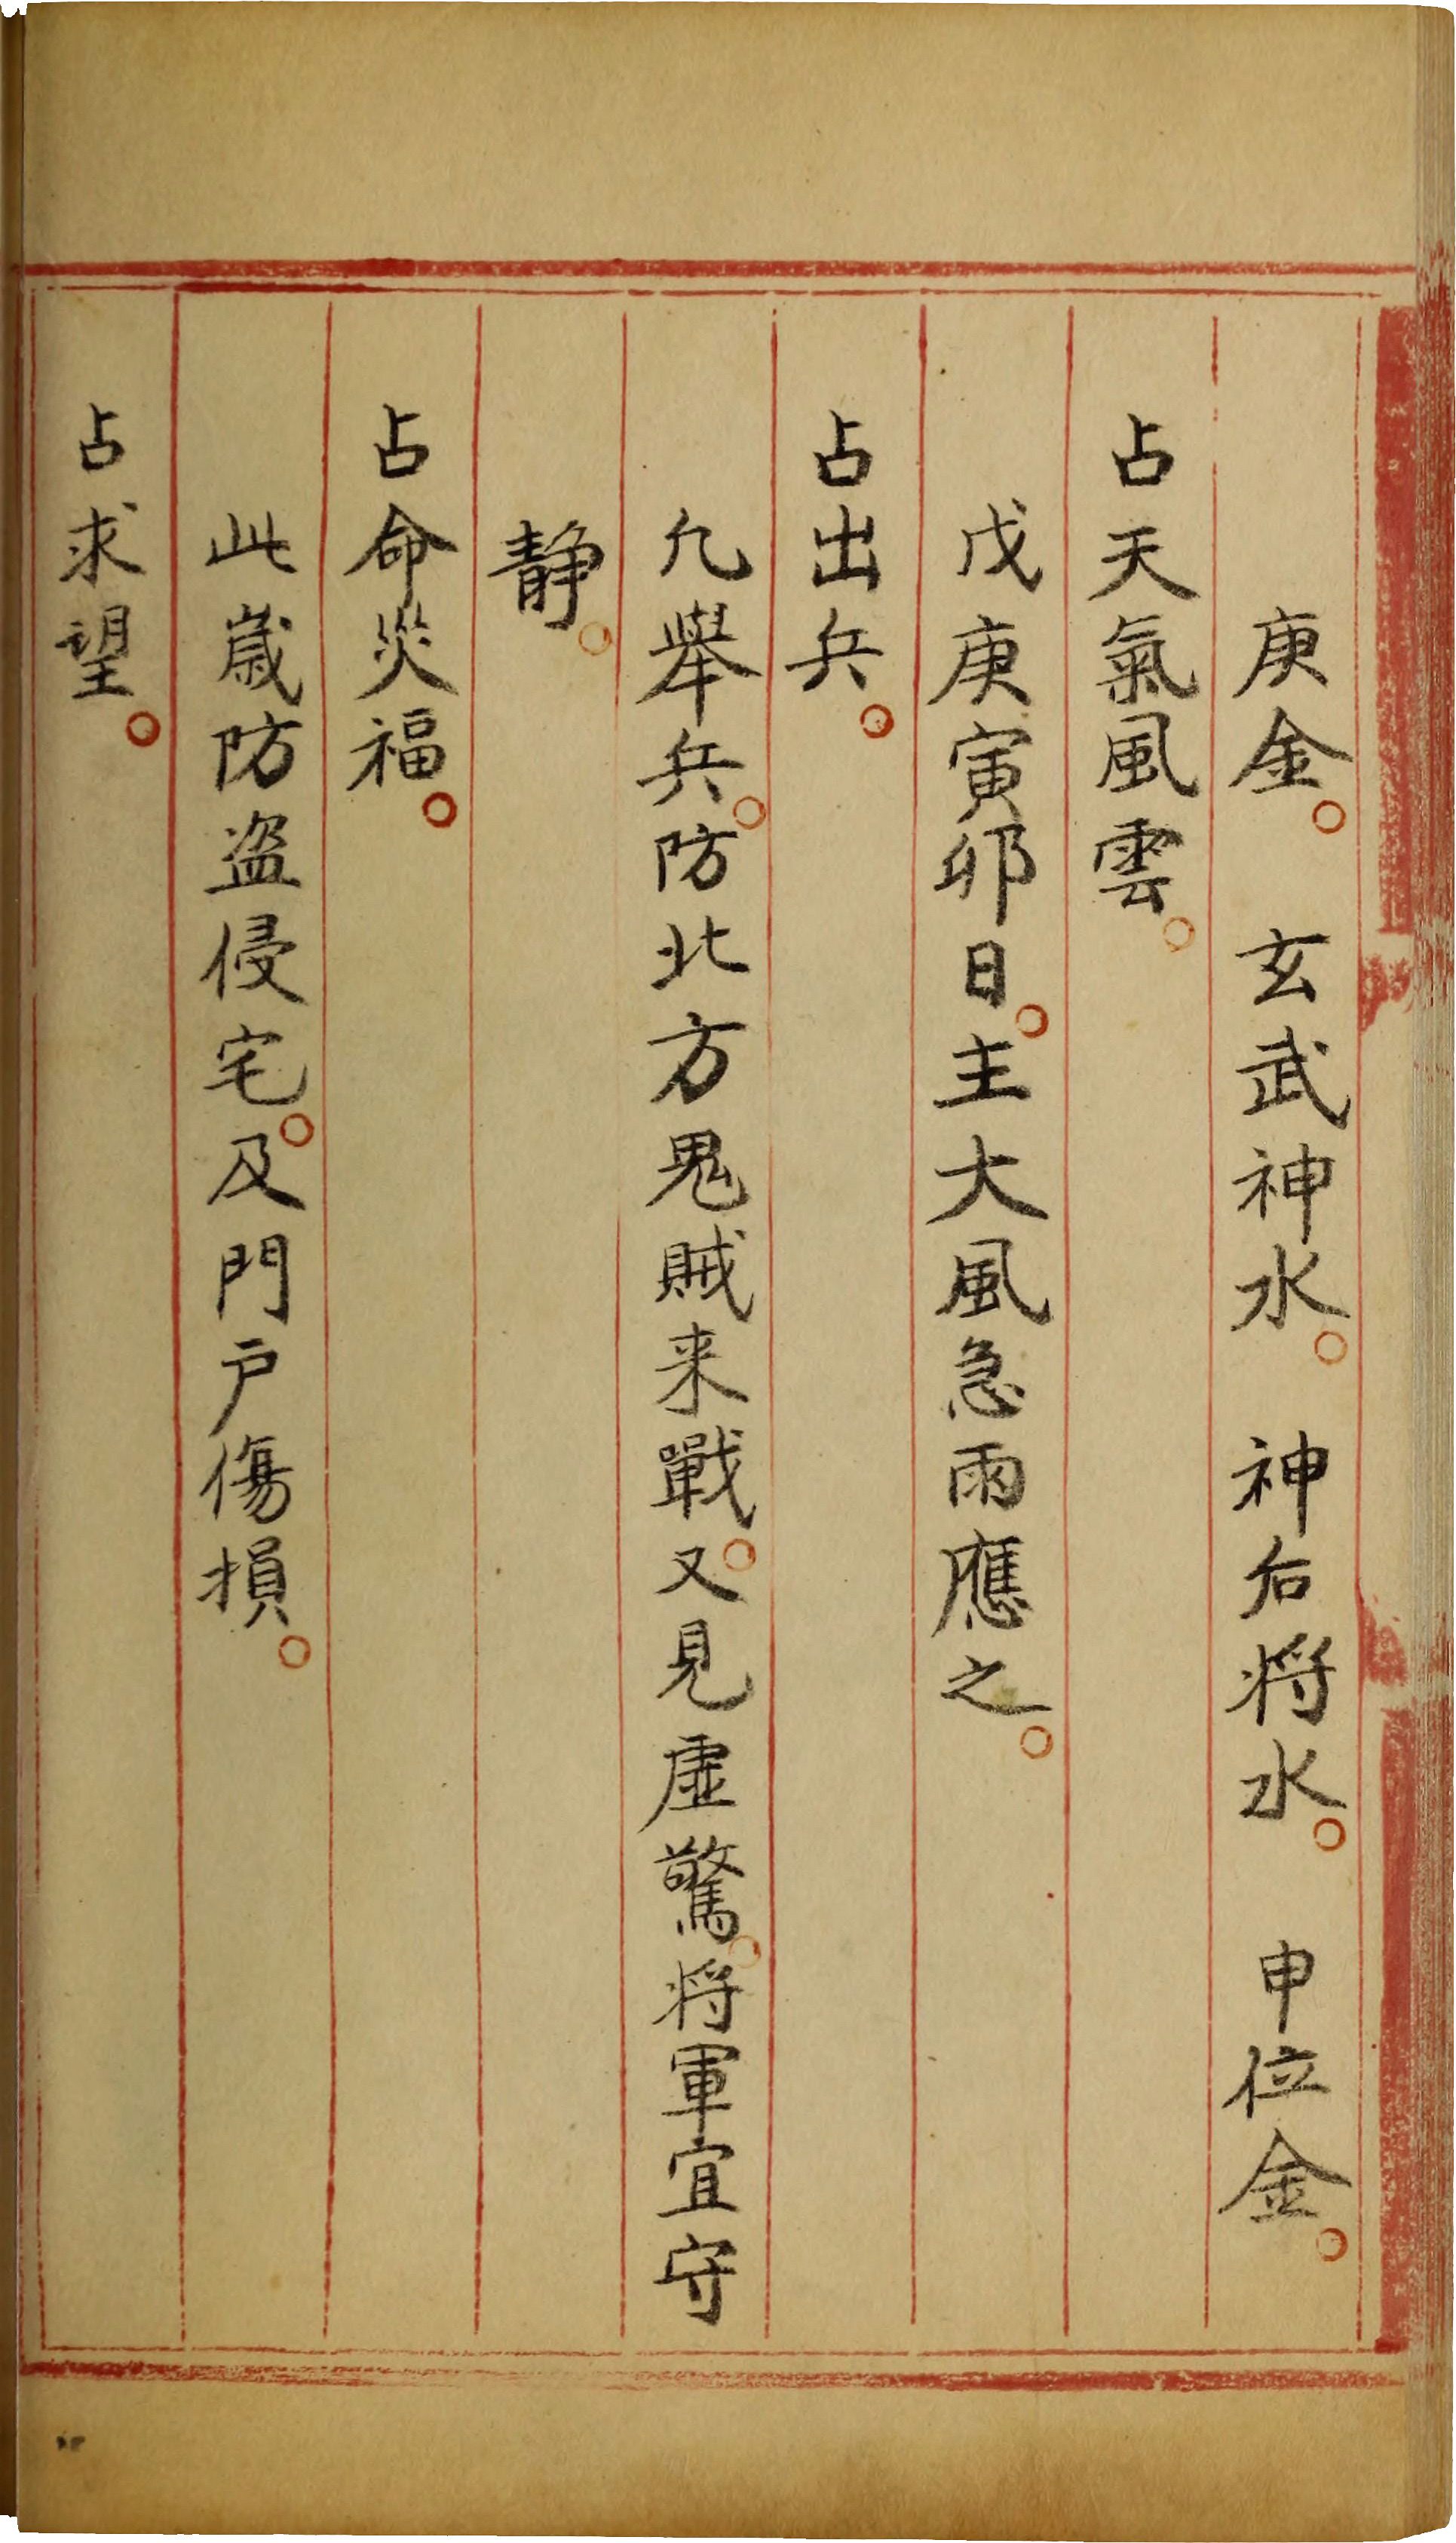 庚金。　玄武神水。　神后将水。　申位金。
占天氣風雲。
戊庚寅卯日。主大風急雨應之。
占出兵。
凢舉兵。防北方鬼賊来戰。又見虛驚。将軍宜守
静。
占命災福。
此歲防盗侵宅。及門戸傷損。
占求望。